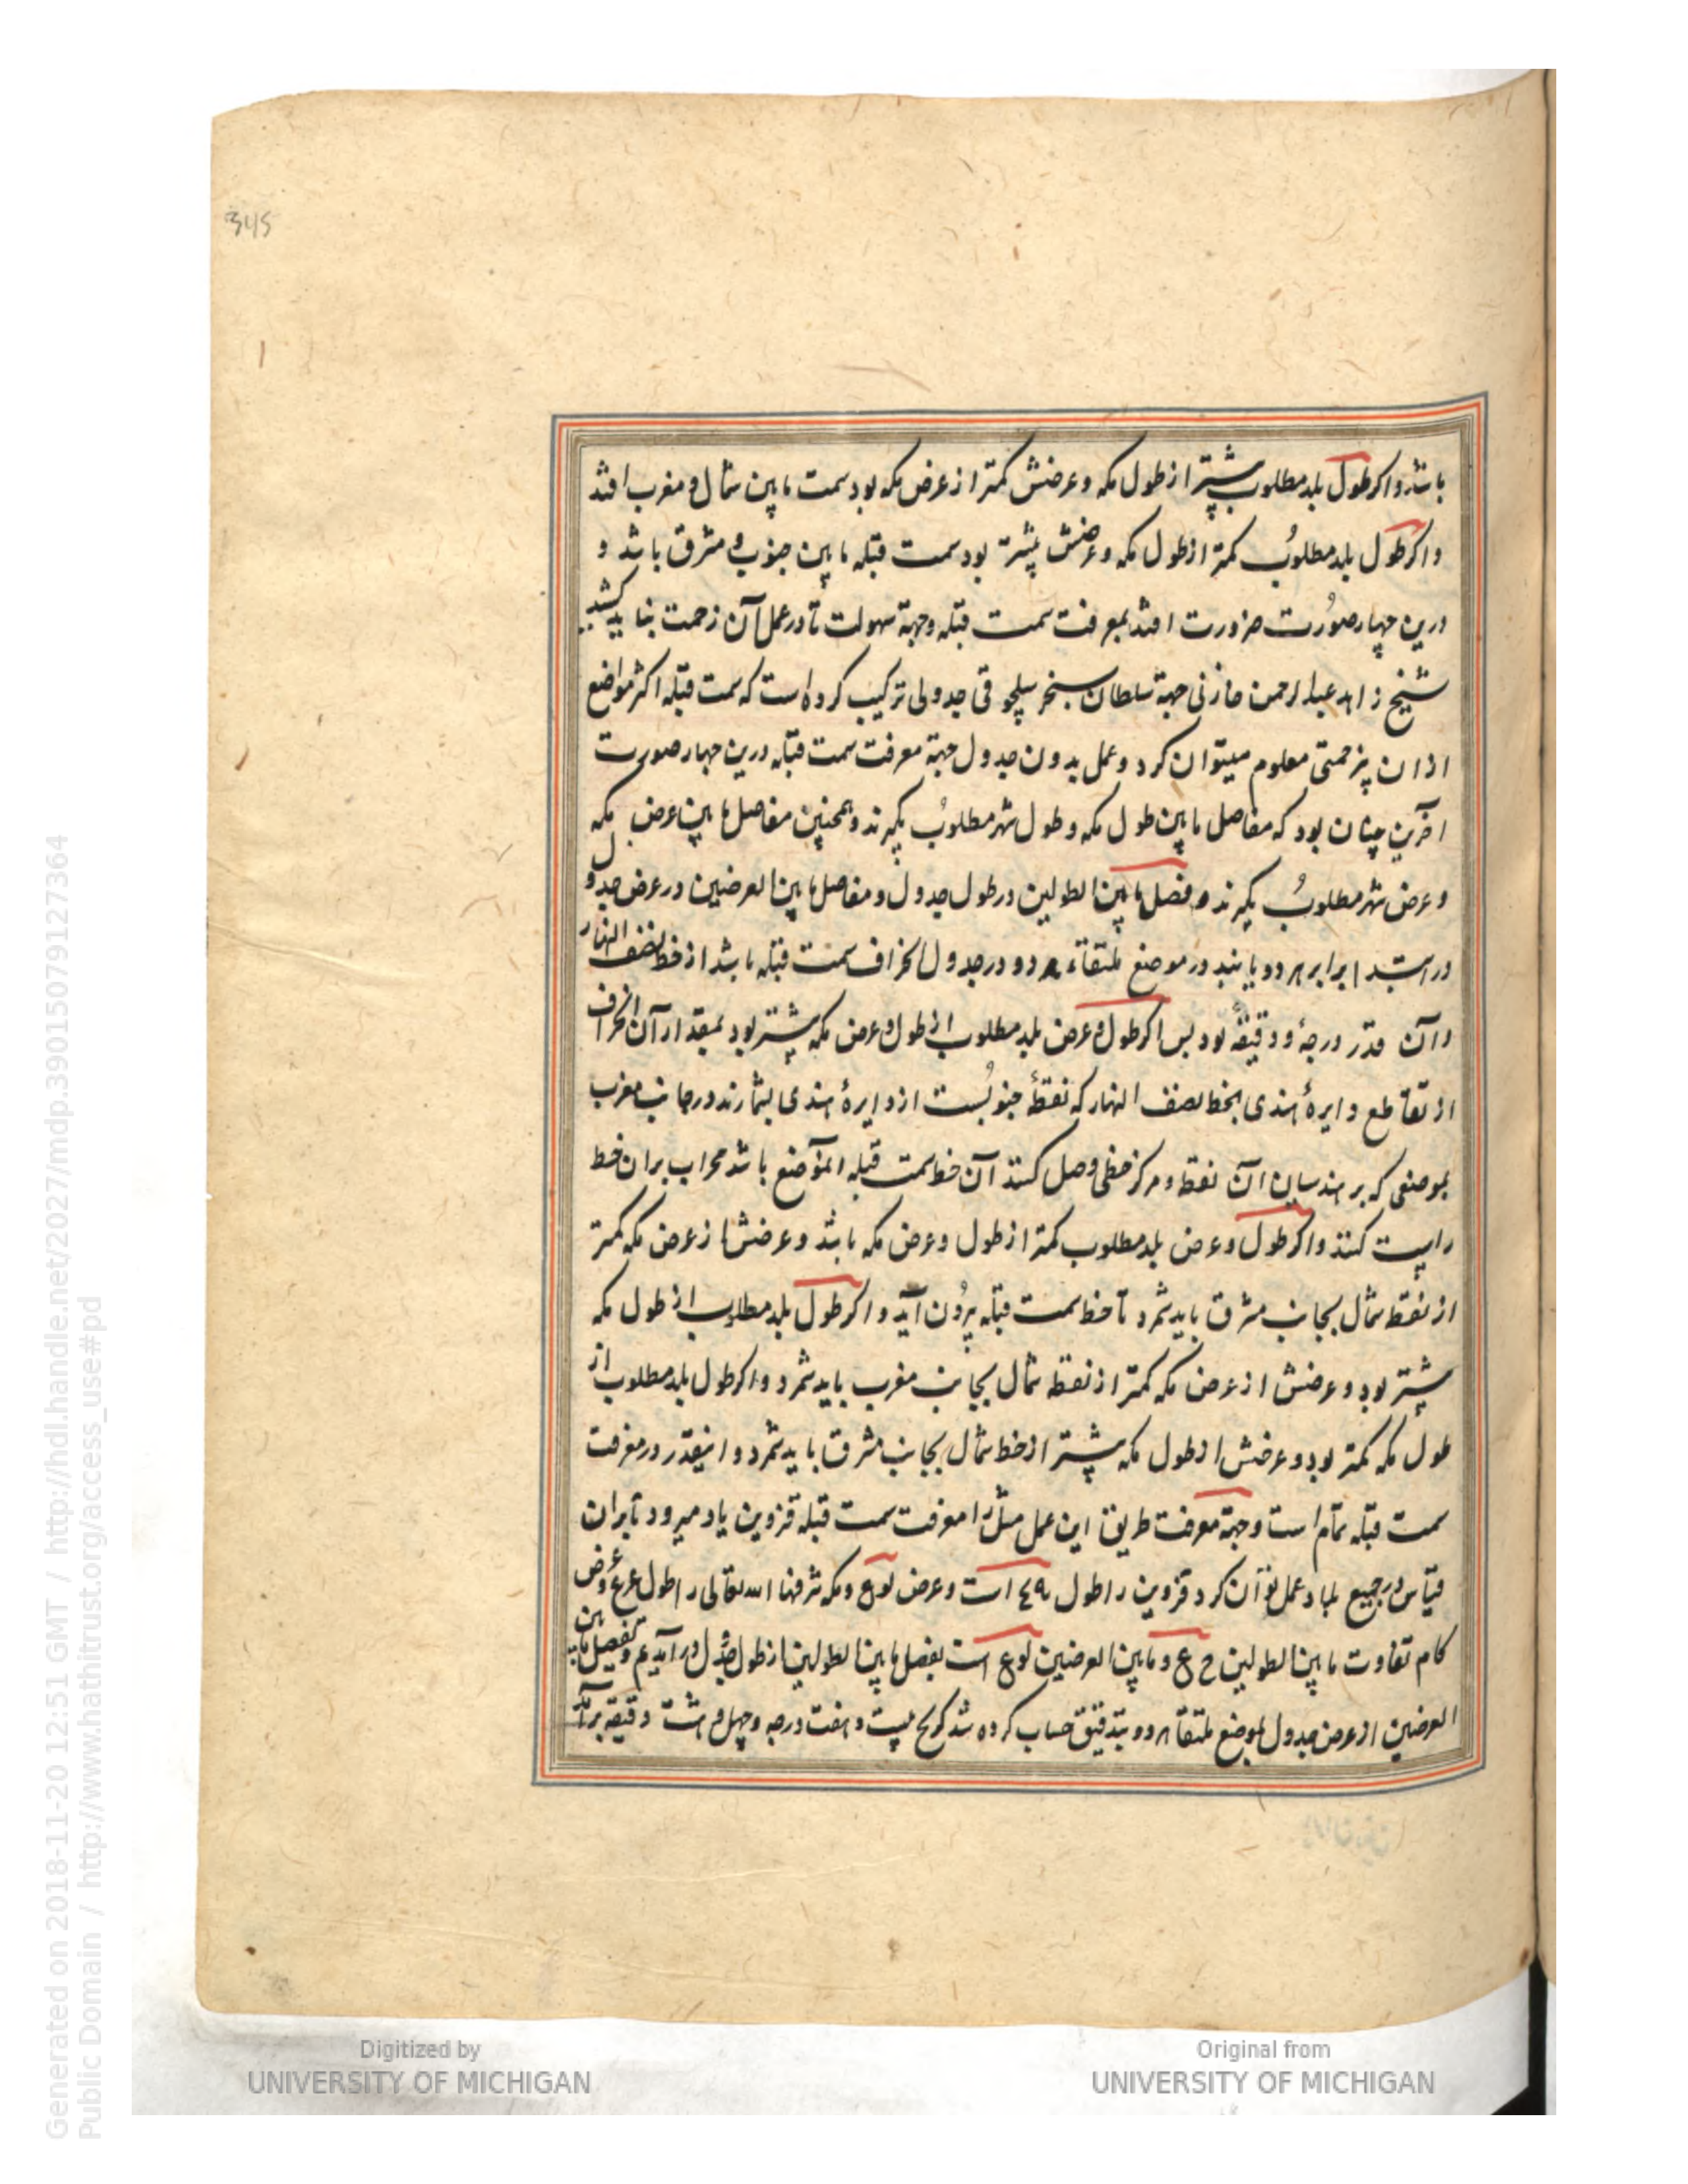 345
باشد و اکر طول بلد مطلوب بیشتر از طول مکه و عرضش کمتر از عرض مکه بود سمت مابین شمال و مغرب افتد
و اکر طول بلد مطلوب کمتر از طول مکه و عرضش بیشتر بود سمت قبله مابین جنوب و مشرق باشد و
درین چهار صورت ضرورت افتد بمعرفت سمت قبله وجهة سهولت تا در عمل آن زحمت بنا یدکشید
شیخ زاهد عبدالرحمن خازنی جهة سلطان سنجر سلجوقی جدولی ترکیب کرده است که سمت قبله اکثر مواضع
ازان بزحمتی معلوم میتوان کرد و عمل بدون جدول جهة معرفت سمت قبله درین چهار صورت
آخرین چنان بود که مفاصل مابین طول مکه و طول شهر مطلوب بکیرند و همچنین مفاصل مابین عرض مکه
و عرض شهر مطلوب بکیرند و فضل مابین الطولین در طول جدول و مفاصل مابین العرضین در عرض جدول
در برابر هر دو یابند در موضع ملتقاء هر دو در جدول انحراف سمت قبله باشد از خط نصف النهار
و آن قدر درجهٔ و دقیقهٔ بود بس اکر طول و عرض بلد مطلوب از طول و عرض مکه بیشتر بود بمقدار آن انحراف
از تقاطع دایرهٔ هندی بخط نصف النهار که نقطهٔ جنوبست از دایرهٔ هندی بشمارند در جانب مغرب
بموضعی که برسد میان آن نقطه و مرکز خطی وصل کنند آن خط سمت قبله الموضع باشد محراب بران خط
راست کنند و اکر طول و عرض بلد مطلوب کمتر از طول و عرض مکه باشد و عرضش از عرض مکه کمتر
از نقطه شمال بجانب مشرق باید شمرد تا خط سمت قبله بیرون آید و اکر طول بلد مطلوب از طول مکه
بیشتر بود و عرضش از عرض مکه کمتر از نقطه شمال بجانب مغرب باید شمرد و اکر طول بلد مطلوب از
طول مکه کمتر بود و عرضش از طول مکه بیشتر از خط شمال بجانب مشرق باید شمرد و اینقدر در معرفت
سمت قبله تمام است وجهة معرفت طریق این عمل مثل را معرفت سمت قبله قزوین یاد میرود تا بران
قیاس در جمیع بلاد عمل توان کرد قزوین را طول است و عرض و مکه شرفها الله تعالی را طول و عرض
کام تفاوت مابین الطولین و مابین العرضین است بفضل مابین الطولین از طول جدول در آمدیم و بفضل مابین
العرضین از عرض جدول بموضع ملتقاء هر دو بتدقیق حساب کرده شد بیست و هفت درجه و چهل و هشت دقیقه برآمد
Digitized by
UNIVERSITY OF MICHIGAN
Original from
UNIVERSITY OF MICHIGAN
Generated on 2018-11-20 12:51 GMT / http://hdl.handle.net/2027/mdp.39015079127364
Public Domain / http://www.hathitrust.org/access_use#pd